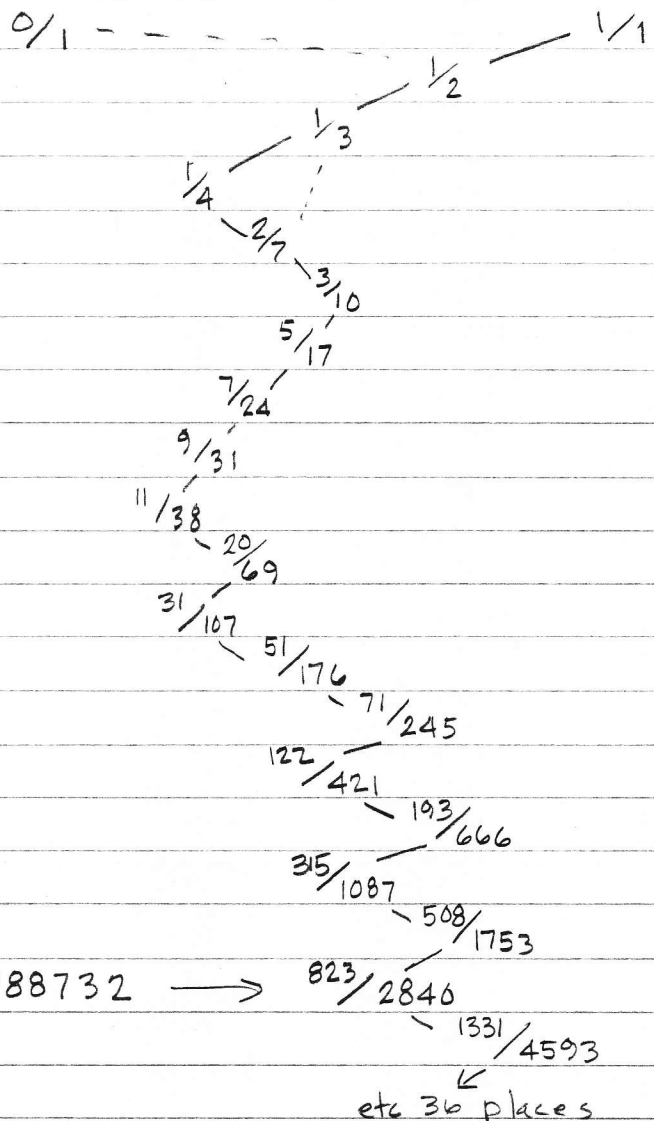 0/1 1/1
1/2
1/3
1/4
2/7
3/10
5/17
7/24
9/31
11/38
20/69
31/107
51/176
71/245
122/421
193/666
315/1087
508/1753
88732 → 823/2840
1331/4593
etc 36 places